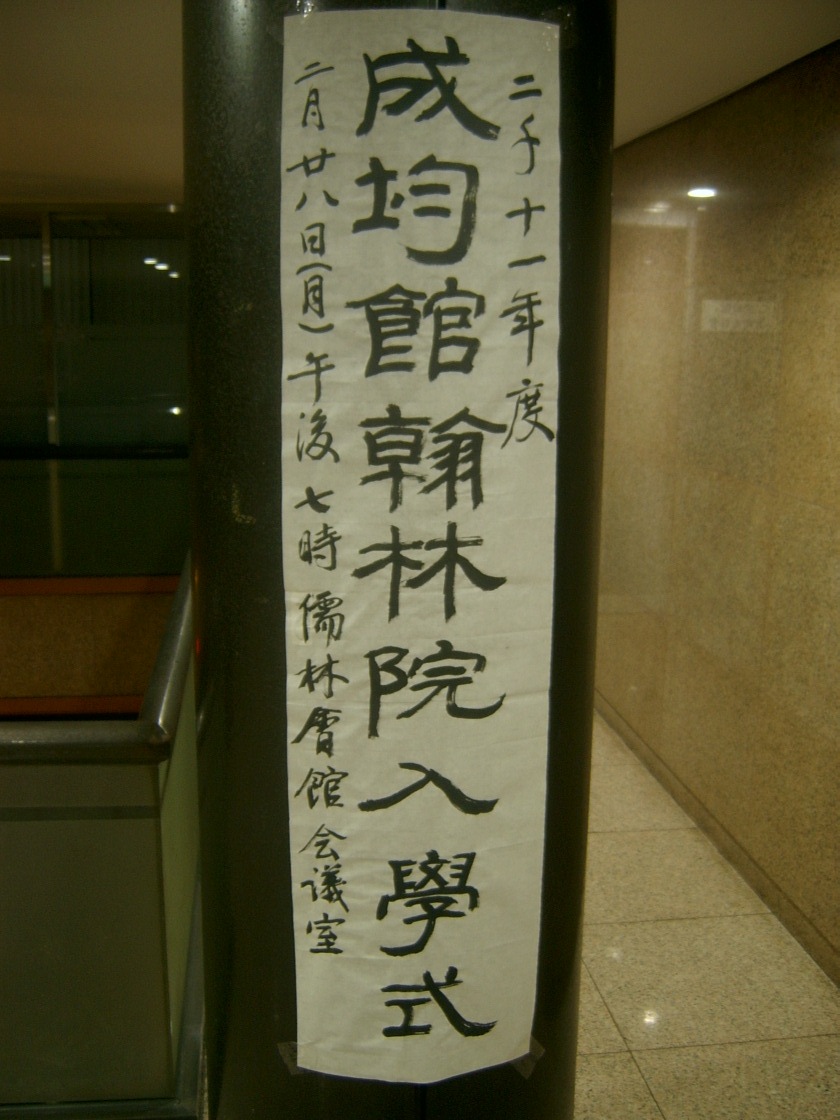 二千十一年度
成均館翰林院入學式
二月廿八日(月)午後七時儒林會館会議室